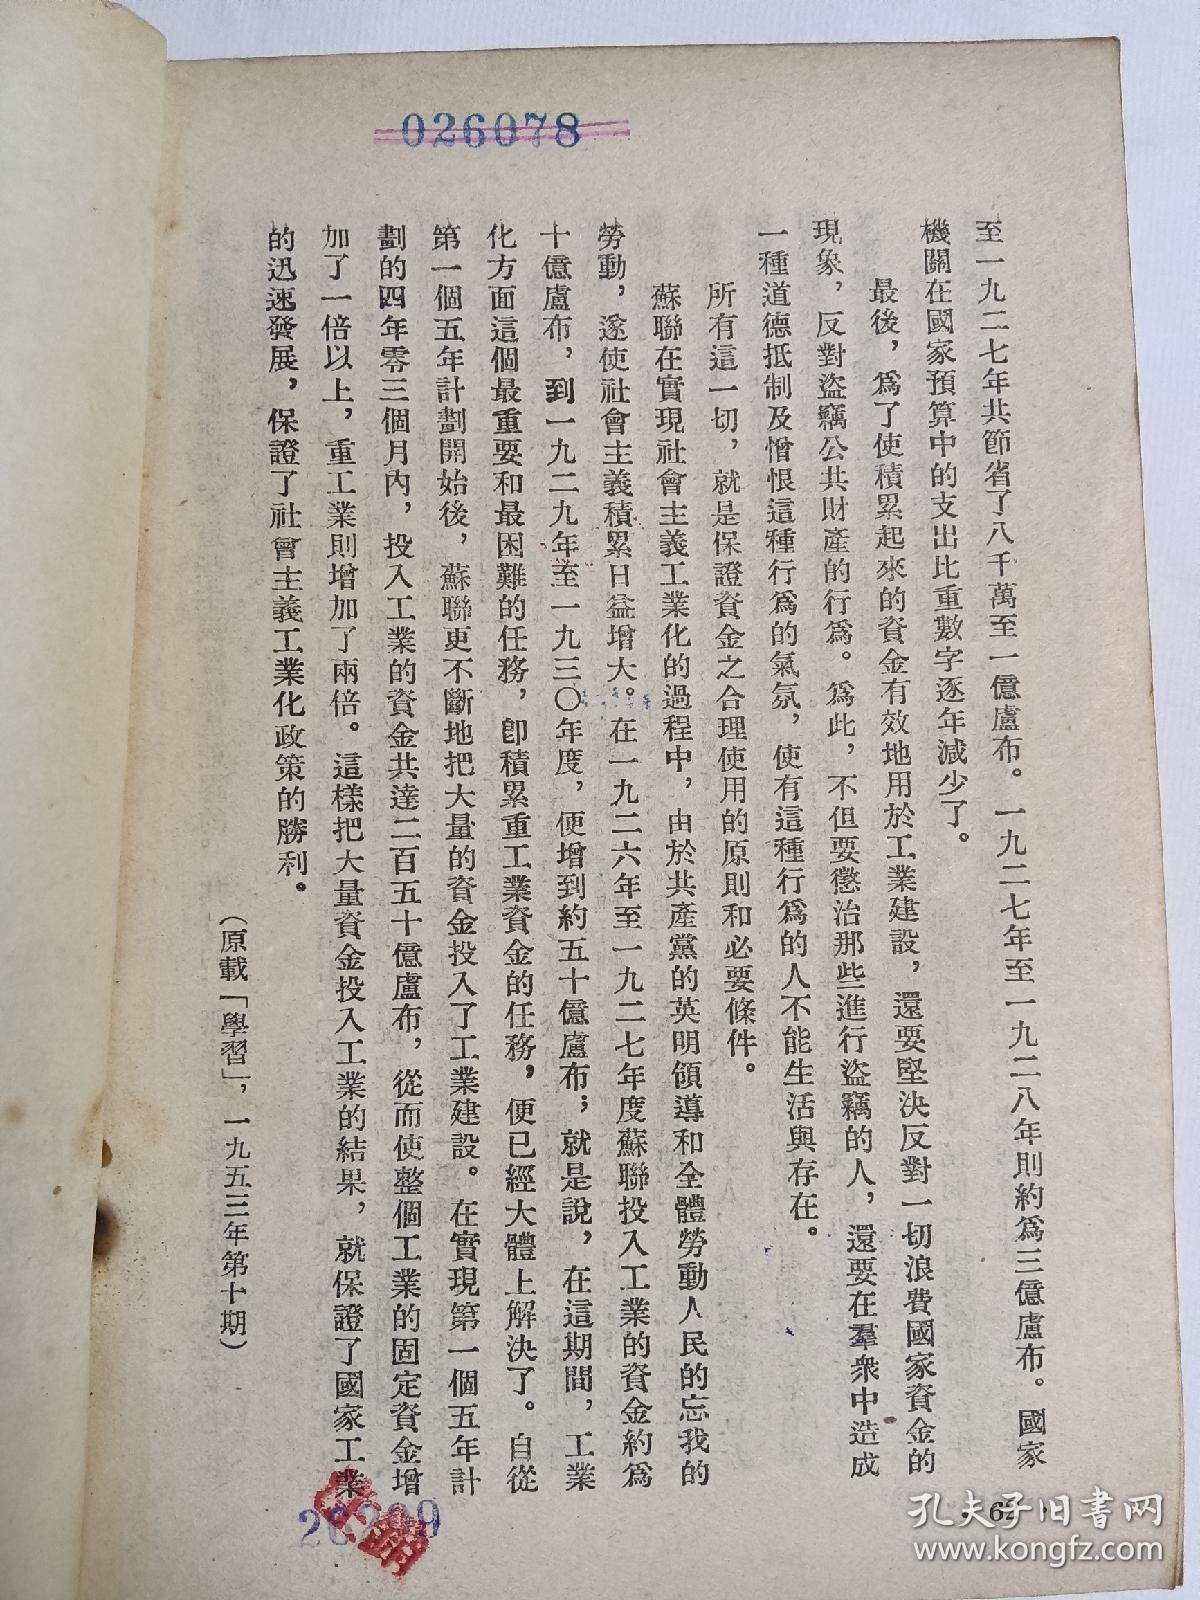 026078
至一九二七年共節省了八千萬至一億盧布。一九二七年至一九二八年則約爲三億盧布。國家
機關在國家預算中的支出比重數字逐年減少了。
最後，爲了使積累起來的資金有效地用於工業建設，還要堅決反對一切浪費國家資金的
現象，反對盜竊公共財產的行爲。爲此，不但要懲治那些進行盜竊的人，還要在羣衆中造成
一種道德抵制及憎恨這種行爲的氣氛，使有這種行爲的人不能生活與存在。
所有這一切，就是保證資金之合理使用的原則和必要條件。
蘇聯在實現社會主義工業化的過程中，由於共產黨的英明領導和全體勞動人民的忘我的
勞動，遂使社會主義積累日益增大。在一九二六年至一九二七年度蘇聯投入工業的資金約爲
十億盧布，到一九二九年至一九三〇年度，便增到約五十億盧布；就是說，在這期間，工業
化方面這個最重要和最困難的任務，卽積累重工業資金的任務，便已經大體上解決了。自從
第一個五年計劃開始後，蘇聯更不斷地把大量的資金投入了工業建設。在實現第一個五年計
劃的四年零三個月內，投入工業的資金共達二百五十億盧布，從而使整個工業的固定資金增
加了一倍以上，重工業則增加了兩倍。這樣把大量資金投入工業的結果，就保證了國家工業
的迅速發展，保證了社會主義工業化政策的勝利。
（原載「學習」，一九五三年第十期）
62
孔夫子旧书网
www.kongfz.com